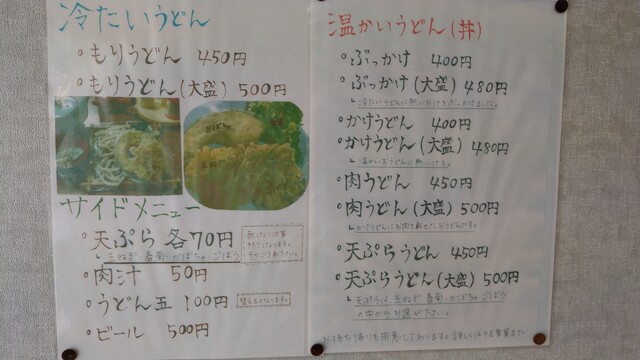 冷たいうどん
もりうどん 450円
もりうどん(大盛) 500円
サイドメニュー
天ぷら 各70円
玉ねぎ・春菊・かぼちゃ・ごぼう
肉汁 50円
うどん玉 100円
ビール 500円
温かいうどん(丼)
ぶっかけ 400円
ぶっかけ(大盛) 480円
かけうどん 400円
かけうどん(大盛) 480円
肉うどん 450円
肉うどん(大盛) 500円
天ぷらうどん 450円
天ぷらうどん(大盛) 500円
天ぷらは玉ねぎ・春菊・かぼちゃ・ごぼう
の中からお選び下さい。